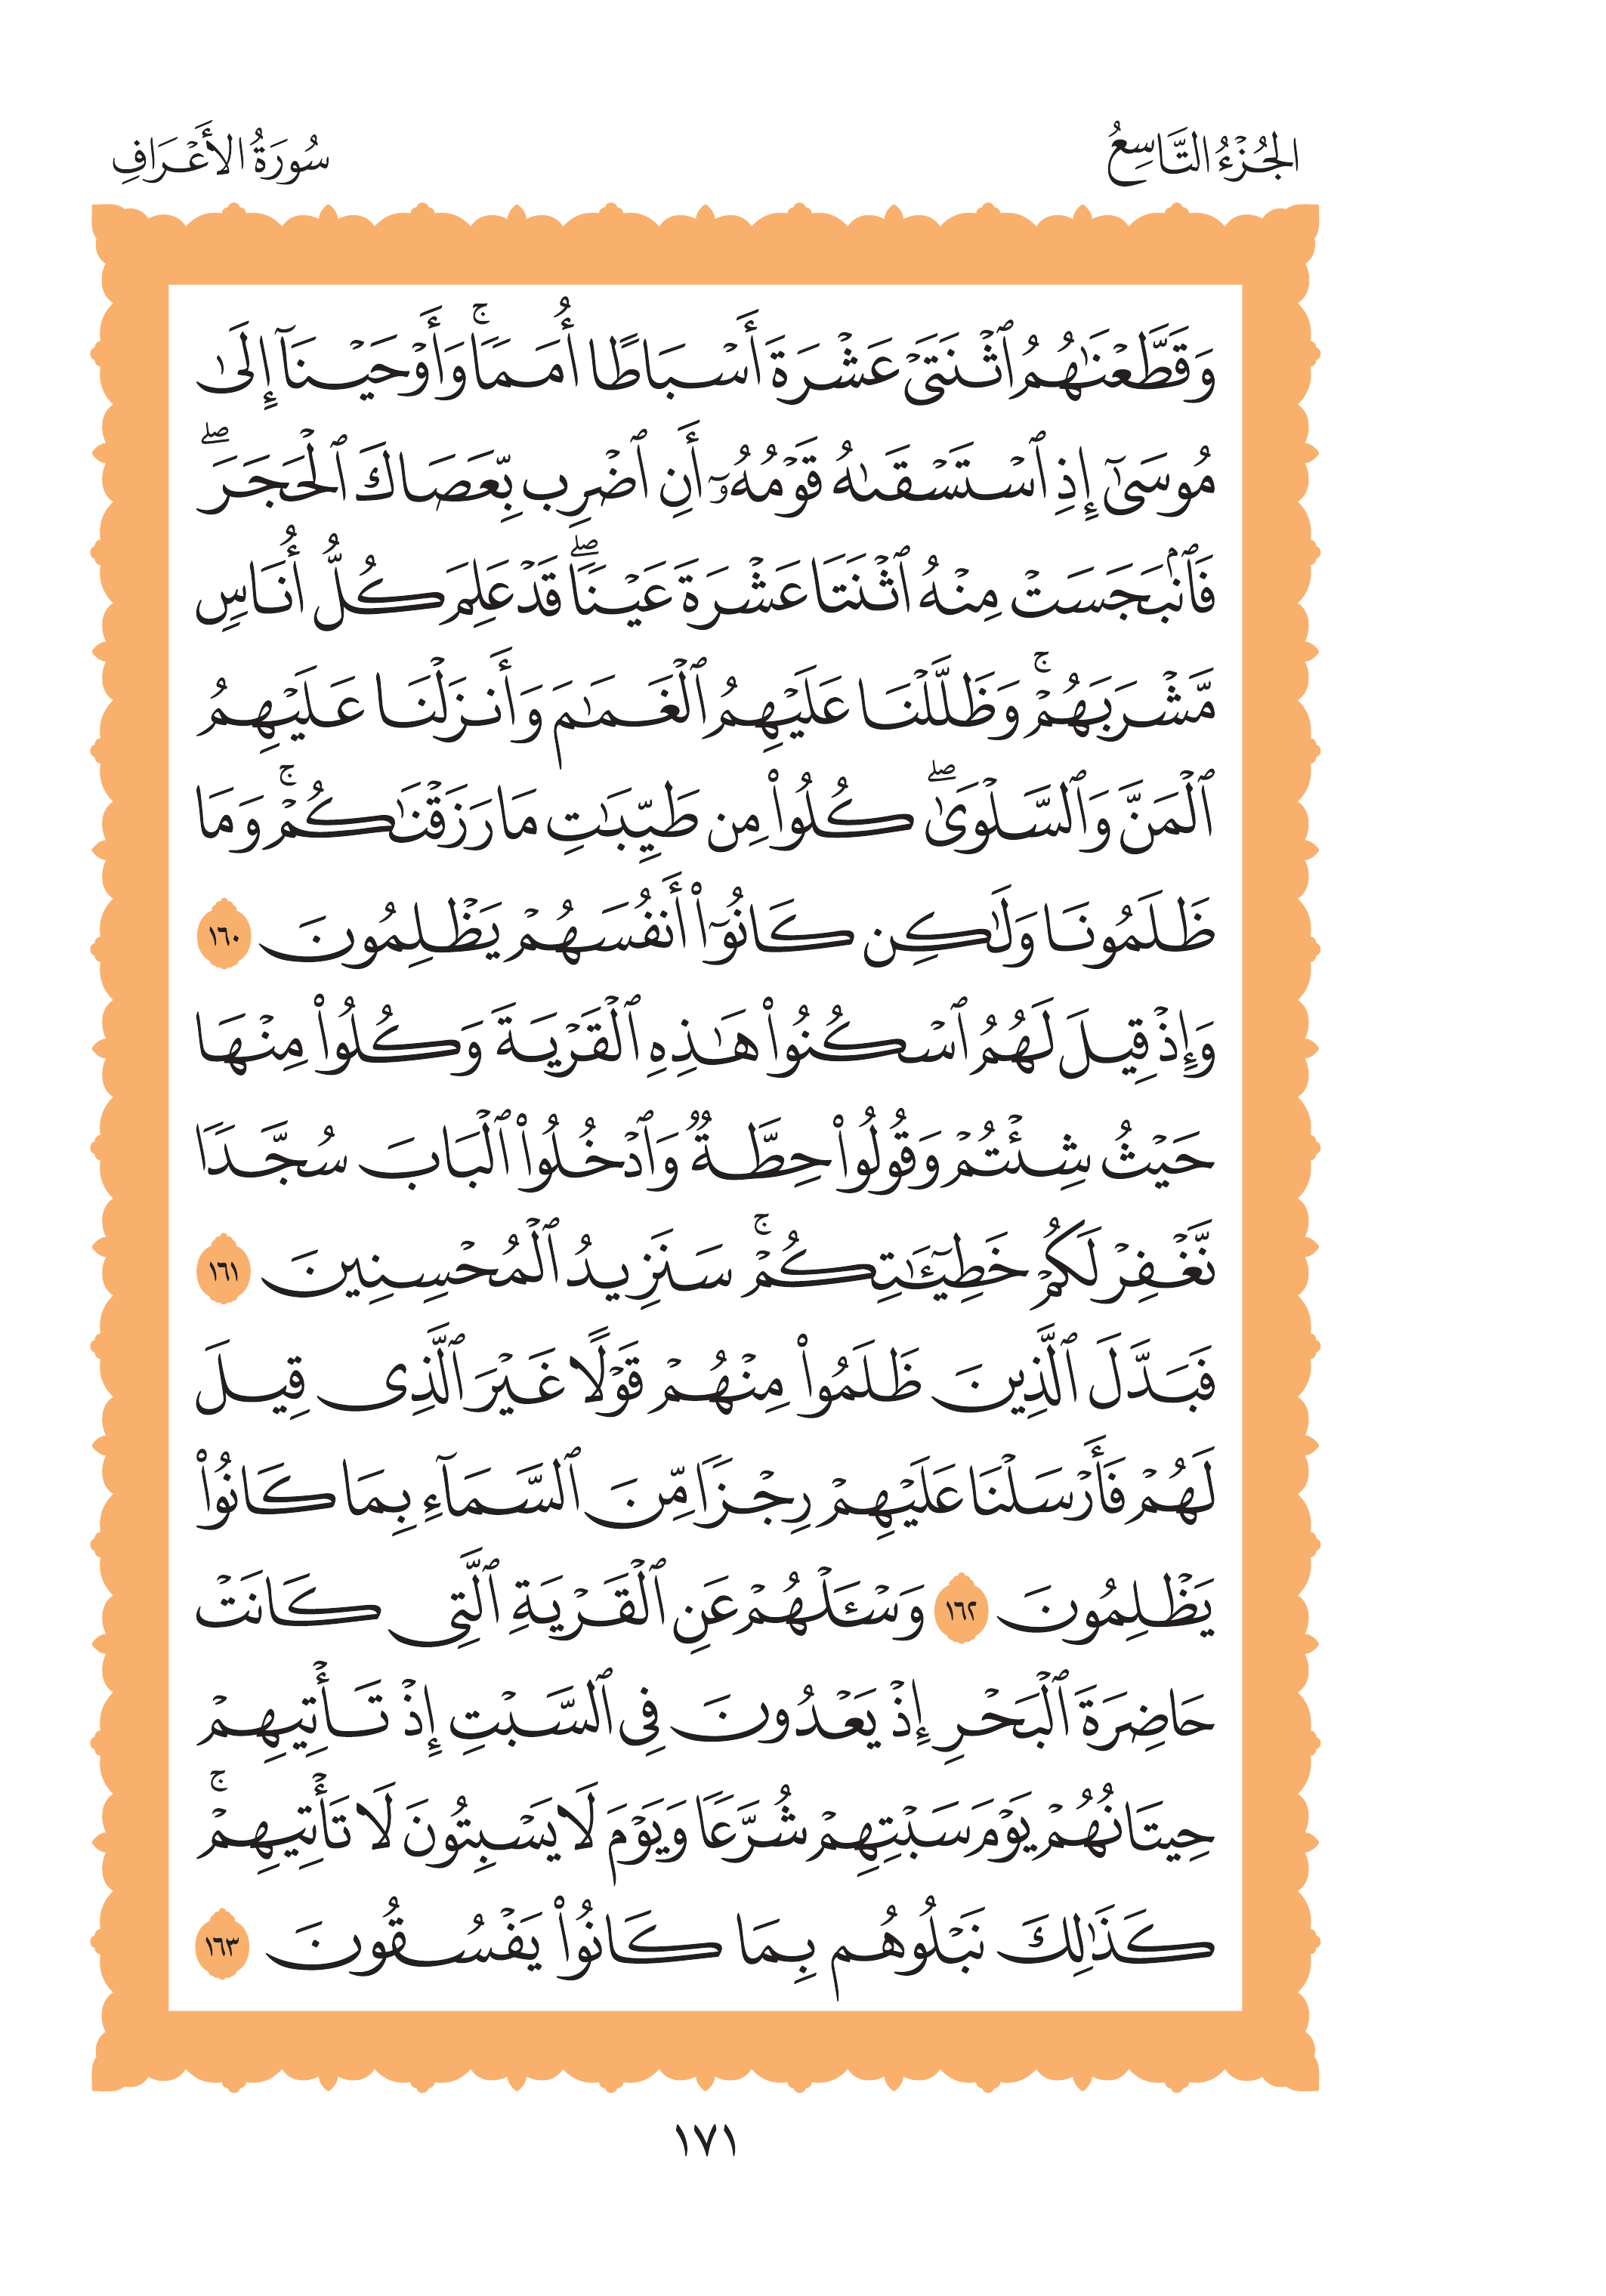 الجُزْءُ التَّاسِعُ
سُورَةُ الأَعْرَافِ
وَقَطَّعْنَٰهُمُ ٱثْنَتَىْ عَشْرَةَ أَسْبَاطًا أُمَمًاۚ وَأَوْحَيْنَآ إِلَىٰ
مُوسَىٰٓ إِذِ ٱسْتَسْقَىٰهُ قَوْمُهُۥٓ أَنِ ٱضْرِب بِّعَصَاكَ ٱلْحَجَرَۖ
فَٱنۢبَجَسَتْ مِنْهُ ٱثْنَتَا عَشْرَةَ عَيْنًاۖ قَدْ عَلِمَ كُلُّ أُنَاسٍ
مَّشْرَبَهُمْۚ وَظَلَّلْنَا عَلَيْهِمُ ٱلْغَمَٰمَ وَأَنزَلْنَا عَلَيْهِمُ
ٱلْمَنَّ وَٱلسَّلْوَىٰۖ كُلُوا۟ مِن طَيِّبَٰتِ مَا رَزَقْنَٰكُمْۚ وَمَا
ظَلَمُونَا وَلَٰكِن كَانُوٓا۟ أَنفُسَهُمْ يَظْلِمُونَ ١٦٠
وَإِذْ قِيلَ لَهُمُ ٱسْكُنُوا۟ هَٰذِهِ ٱلْقَرْيَةَ وَكُلُوا۟ مِنْهَا
حَيْثُ شِئْتُمْ وَقُولُوا۟ حِطَّةٌ وَٱدْخُلُوا۟ ٱلْبَابَ سُجَّدًا
نَّغْفِرْ لَكُمْ خَطِيٓـَٰٔتِكُمْۚ سَنَزِيدُ ٱلْمُحْسِنِينَ ١٦١
فَبَدَّلَ ٱلَّذِينَ ظَلَمُوا۟ مِنْهُمْ قَوْلًا غَيْرَ ٱلَّذِى قِيلَ
لَهُمْ فَأَرْسَلْنَا عَلَيْهِمْ رِجْزًا مِّنَ ٱلسَّمَآءِ بِمَا كَانُوا۟
يَظْلِمُونَ ١٦٢ وَسْـَٔلْهُمْ عَنِ ٱلْقَرْيَةِ ٱلَّتِى كَانَتْ
حَاضِرَةَ ٱلْبَحْرِ إِذْ يَعْدُونَ فِى ٱلسَّبْتِ إِذْ تَأْتِيهِمْ
حِيتَانُهُمْ يَوْمَ سَبْتِهِمْ شُرَّعًا وَيَوْمَ لَا يَسْبِتُونَ لَا تَأْتِيهِمْۚ
كَذَٰلِكَ نَبْلُوهُم بِمَا كَانُوا۟ يَفْسُقُونَ ١٦٣
١٧١